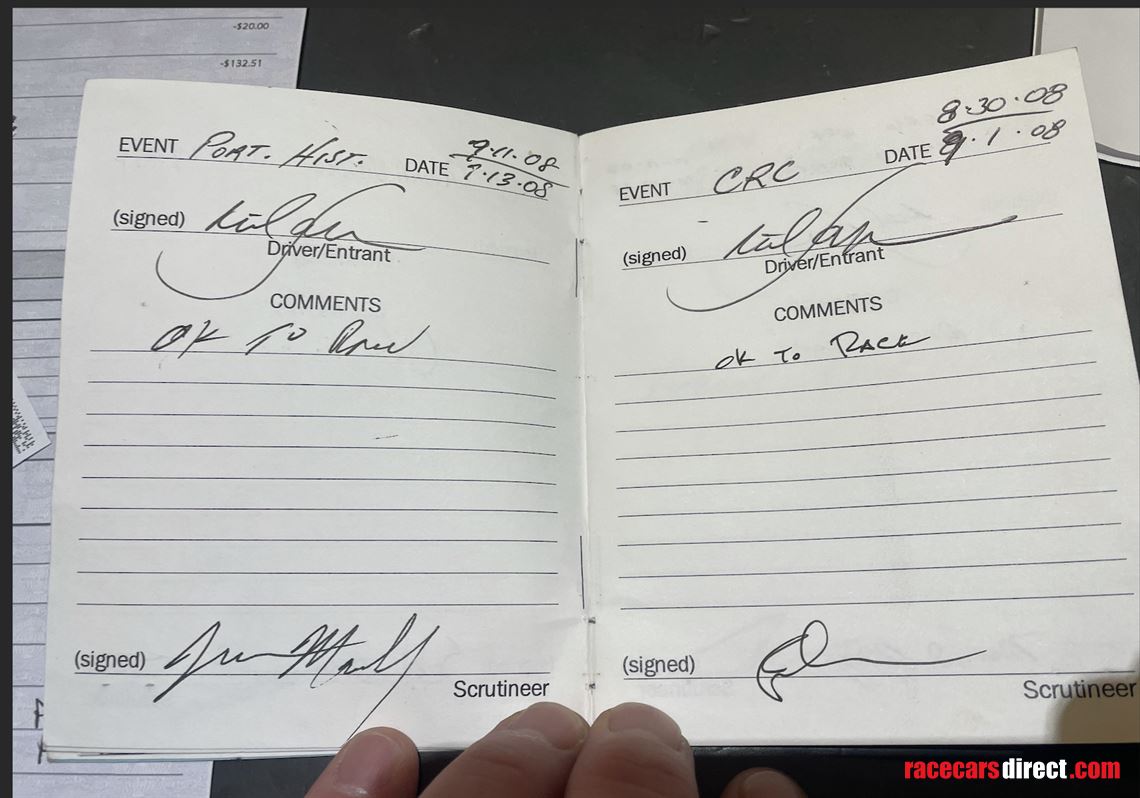 -$20.00
-$132.51
EVENT PORT. HIST. DATE 9·11·08
9·13·08
(signed)
Driver/Entrant
COMMENTS
OK TO Race
(signed)
Scrutineer
8·30·08
EVENT CRC DATE 9·1·08
(signed)
Driver/Entrant
COMMENTS
OK TO RACE
(signed)
Scrutineer
racecarsdirect.com